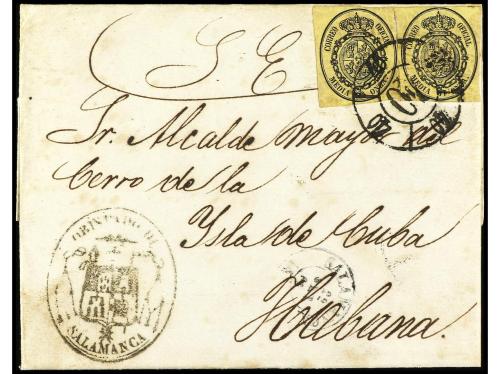 S. E.
CORREO OFICIAL
MEDIA ONZA
CORREO OFICIAL
MEDIA ONZA
Sr. Alcalde mayor del
Cerro de la
Isla de Cuba
Habana.
OBISPADO DE
SALAMANCA